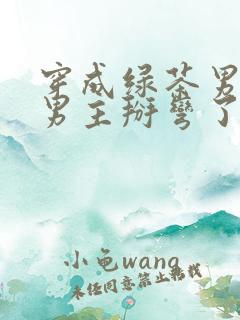 穿成绿茶男
男主掰弯了
小龟wang
未经同意禁止转载